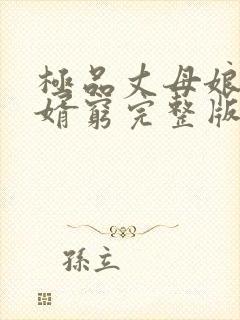 極品丈母娘
婿窮完整版
孫立